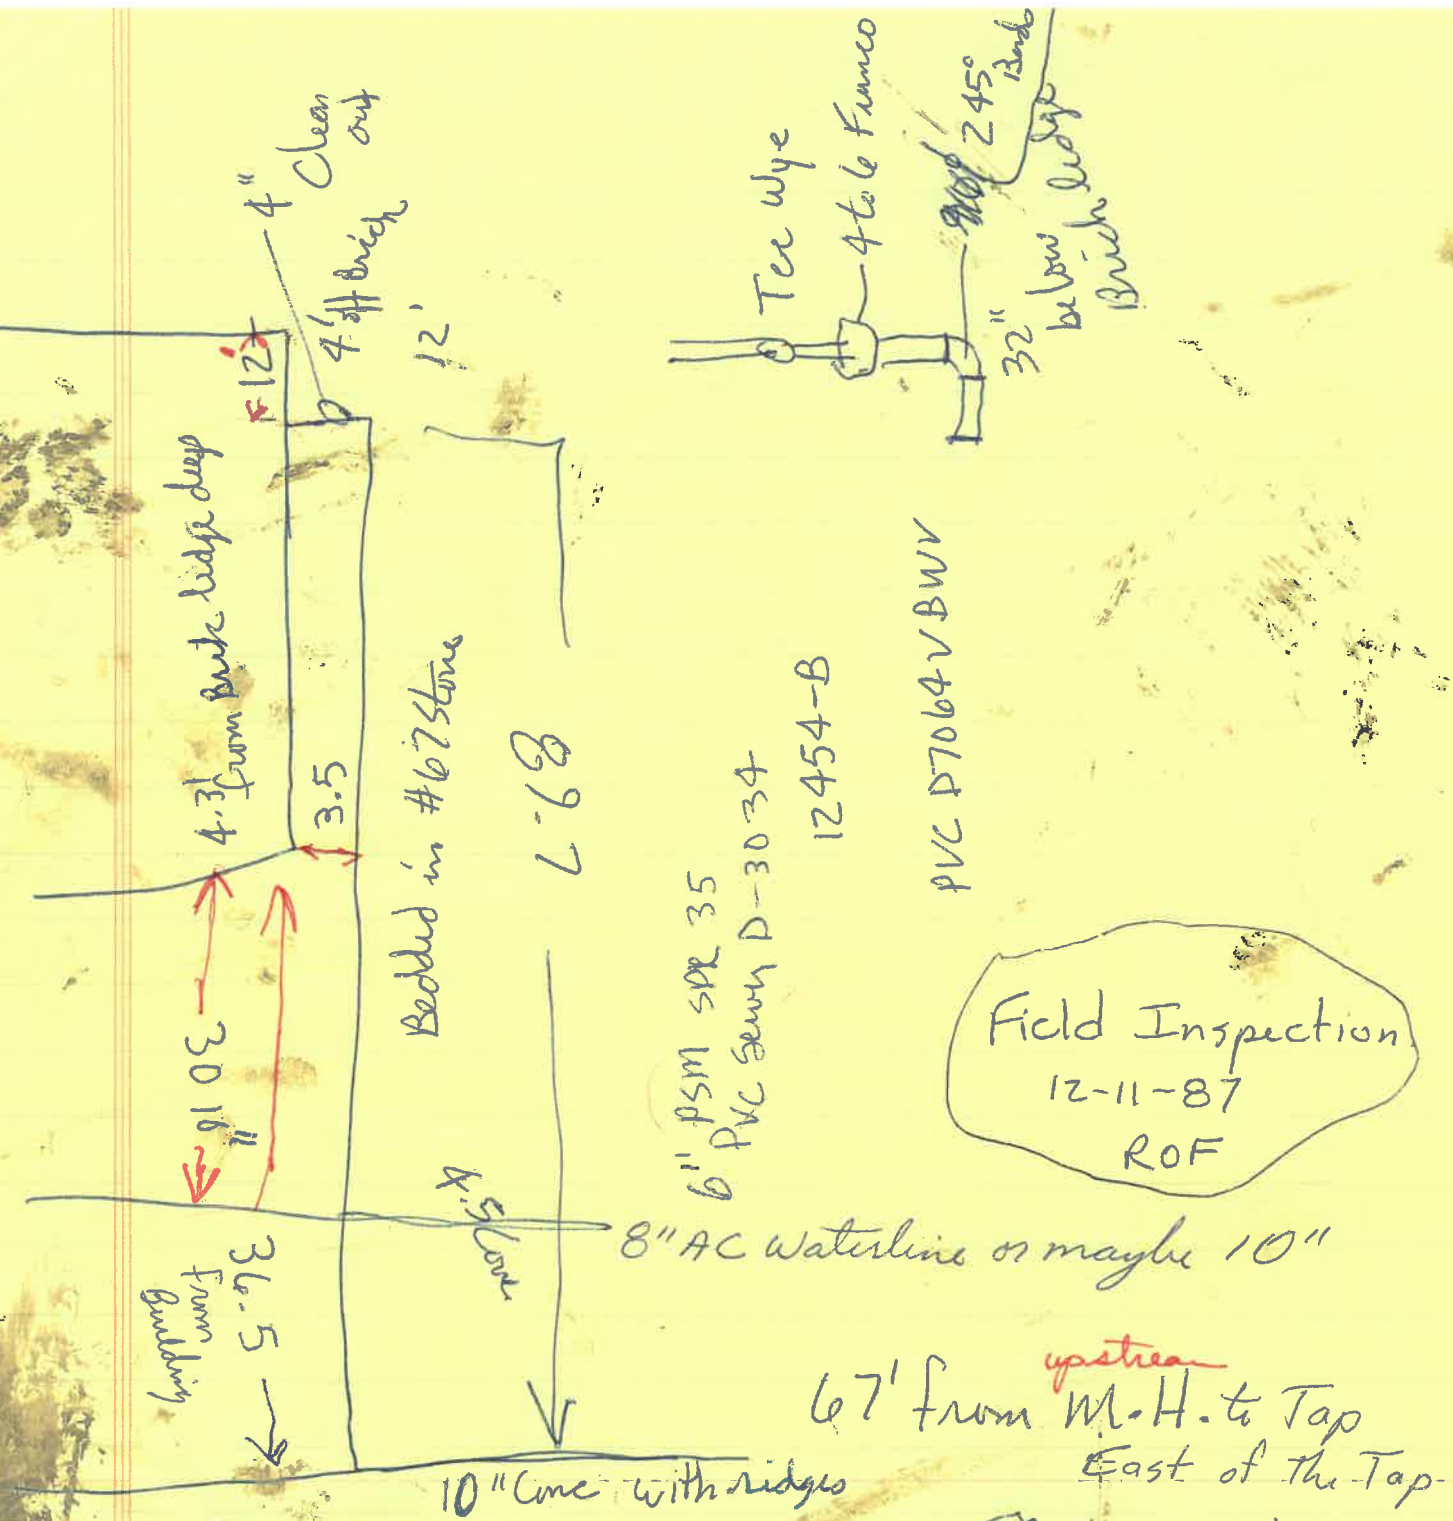 4"
Clean
out
4' off Brick
12'
12'
4.3'
from Brick ledge deep
3.5
Bedded in #67 Stone
89.7
30' 16"
36.5
from
Building
Tee Wye
4 to 6 Furnco
2 45°
Bends
32"
below
Brick ledge
6" PSM SDR 35
PVC Sewer D-3034
12454-B
PVC D7064VBWV
Field Inspection
12-11-87
ROF
8" AC Waterline or maybe 10"
upstream
67' from M.H. to Tap
East of the Tap
10" Conc with ridges